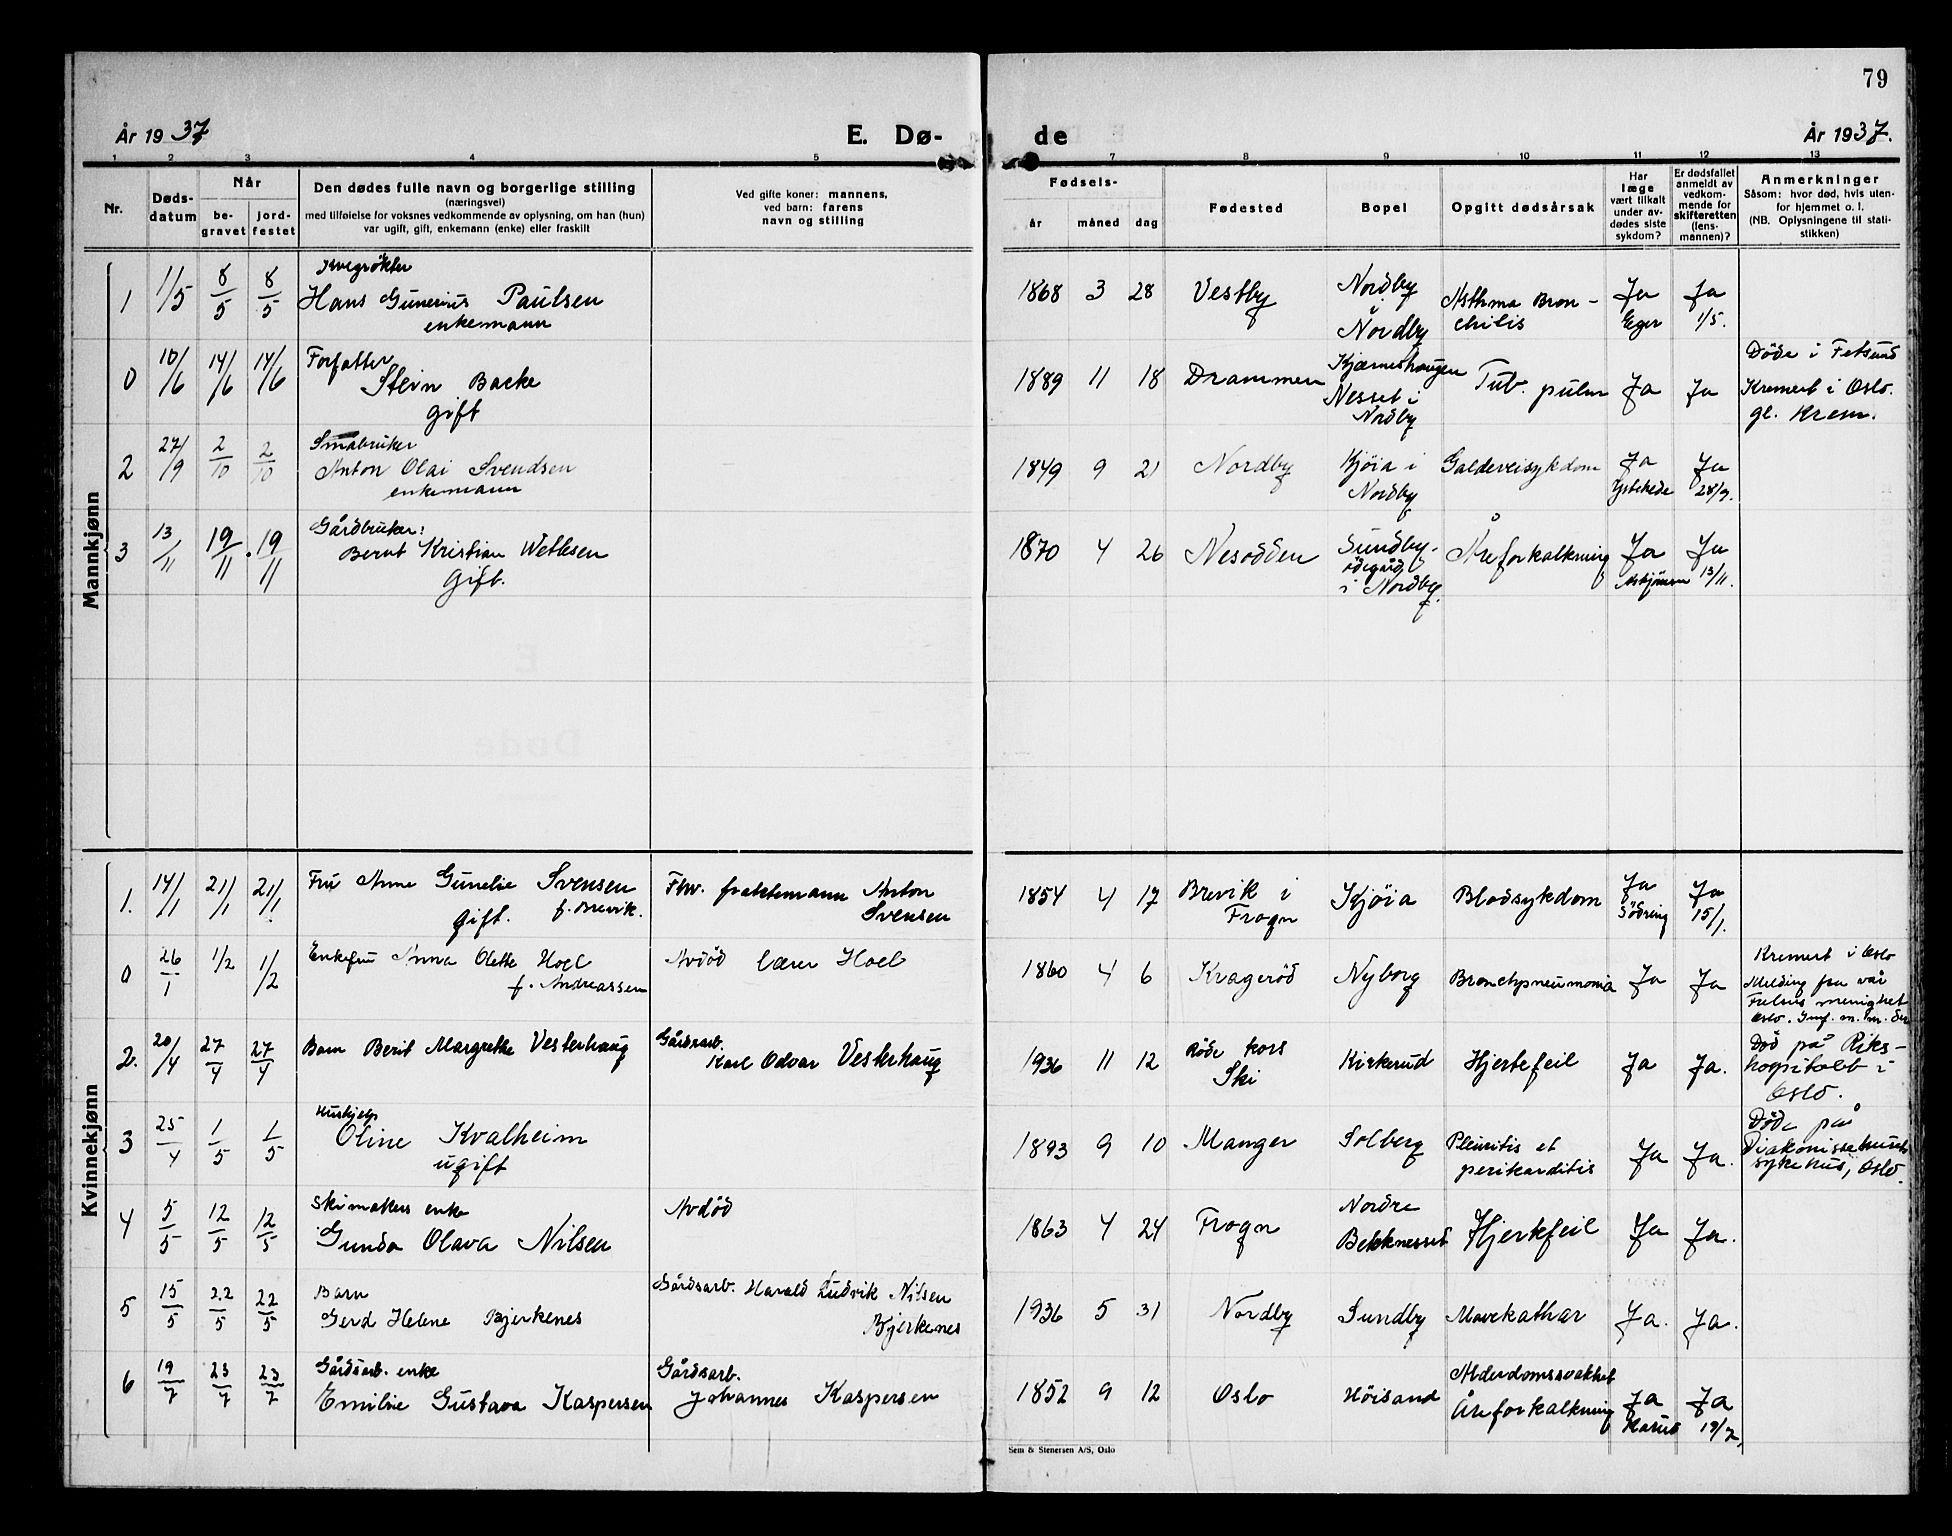 79
År 1937
E. Dø-
de
År 1937.
1 2 3 4 5 7 8 9 10 11 12 13
Nr.
Døds-
datum
Når
be-
gravet
jord-
festet
Den dødes fulle navn og borgerlige stilling
(næringsvei)
med tilføielse for voksnes vedkommende av oplysning, om han (hun)
var ugift, gift, enkemann (enke) eller fraskilt
Ved gifte koner: mannens,
ved barn: farens
navn og stilling
Fødsels-
år måned dag
Fødested
Bopel
Opgitt dødsårsak
Har
læge
vært tilkalt
under av-
dødes siste
sykdom?
Er dødsfallet
anmeldt av
vedkom-
mende for
skifteretten
(lens-
mannen)?
Anmerkninger
Såsom: hvor død, hvis uten-
for hjemmet o. l.
(NB. Oplysningene til stati-
stikken)
Mannkjønn
1 1/5 8/5 8/5
Kvegrøkter
Hans Gunerius Paulsen
enkemann
1868 3 28 Vestby
Nordby
i
Nordby
Asthma Bron-
chitis
Ja
Eger
Ja
1/5.
0 10/6 14/6 14/6
Forfatter
Stein Backe
gift
1889 11 18 Drammen
Kjærneshaugen
Nesset i
Nordby
Tub. pulm
Ja
Ja
Døde i Fetsund
Kremert i Oslo.
gl. Krem.
2 27/9 2/10 2/10
Småbruker
Anton Olai Svendsen
enkemann
1849 9 21 Nordby
Kjøia i
Nordby
Galdeveisykdom
Ja
Ja
28/9.
3 13/11 19/11 19/11
Gårdbruker:
Bernt Kristian Wetlesen
Gift.
1870 4 26 Nesodden
Sundby-
ødegård
i Nordby.
Åreforkalkning
Ja
Asbjørnsen
Ja
13/11.
Kvinnekjønn
1. 14/1 21/1 21/1
Fru Anne Gunelie Svensen
gift. f. Brevik.
Fhv. fraktemann Anton
Svensen
1854 4 17
Brevik i
Frogn
Kjøia
Blodsykdom
Ja
Sødring
Ja
15/1.
0 26/1 1/2 1/2
Enkefru Anna Olette Hoel
f. Andreassen
Avdød lærer Hoel
1860 4 6 Kragerød
Nyborg
Bronchpneumonia
Ja
Ja
Kremert i Oslo
Melding fra vår
Frelsers menighet
Oslo.
2. 20/4 27/4 27/4
Barn Berit Margrethe Vesterhaug
Gårdsarb.
Karl Odvar Vesterhaug
1936 11 12
Røde kors
Ski
Kirkerud
Hjertefeil
Ja
Ja.
Død på Riks-
hospitalet i
Oslo.
3 25/4 1/5 1/5
Hushjelp
Oline Kvalheim
ugift
1893 9 10 Manger
Solberg
Pleuritis et
perikarditis
Ja
Ja.
Døde på
Diakonissehusets
sykehus, Oslo.
4 5/5 12/5 12/5
Skimakers enke
Gunda Olava Nilsen
Avdød
1863 4 24 Frogn
Nordre
Bekknesset
Hjertefeil
Ja
Ja.
5 15/5 22/5 22/5
Barn
Gerd Helene Bjerkenes
Gårdsarb. Harald Ludvik Nilsen
Bjerkenes
1936 5 31 Nordby
Sundby
Mavekathar
Ja.
Ja.
6 19/7 23/7 23/7
Gårdsarb. enke
Emilie Gustava Kaspersen
Gårdsarb.
Johannes Kaspersen
1852 9 12 Oslo
Høisand
Alderdomssvakhet
Åreforkalkning
Ja
Harud
Ja
19/7.
Sem & Stenersen A/S, Oslo